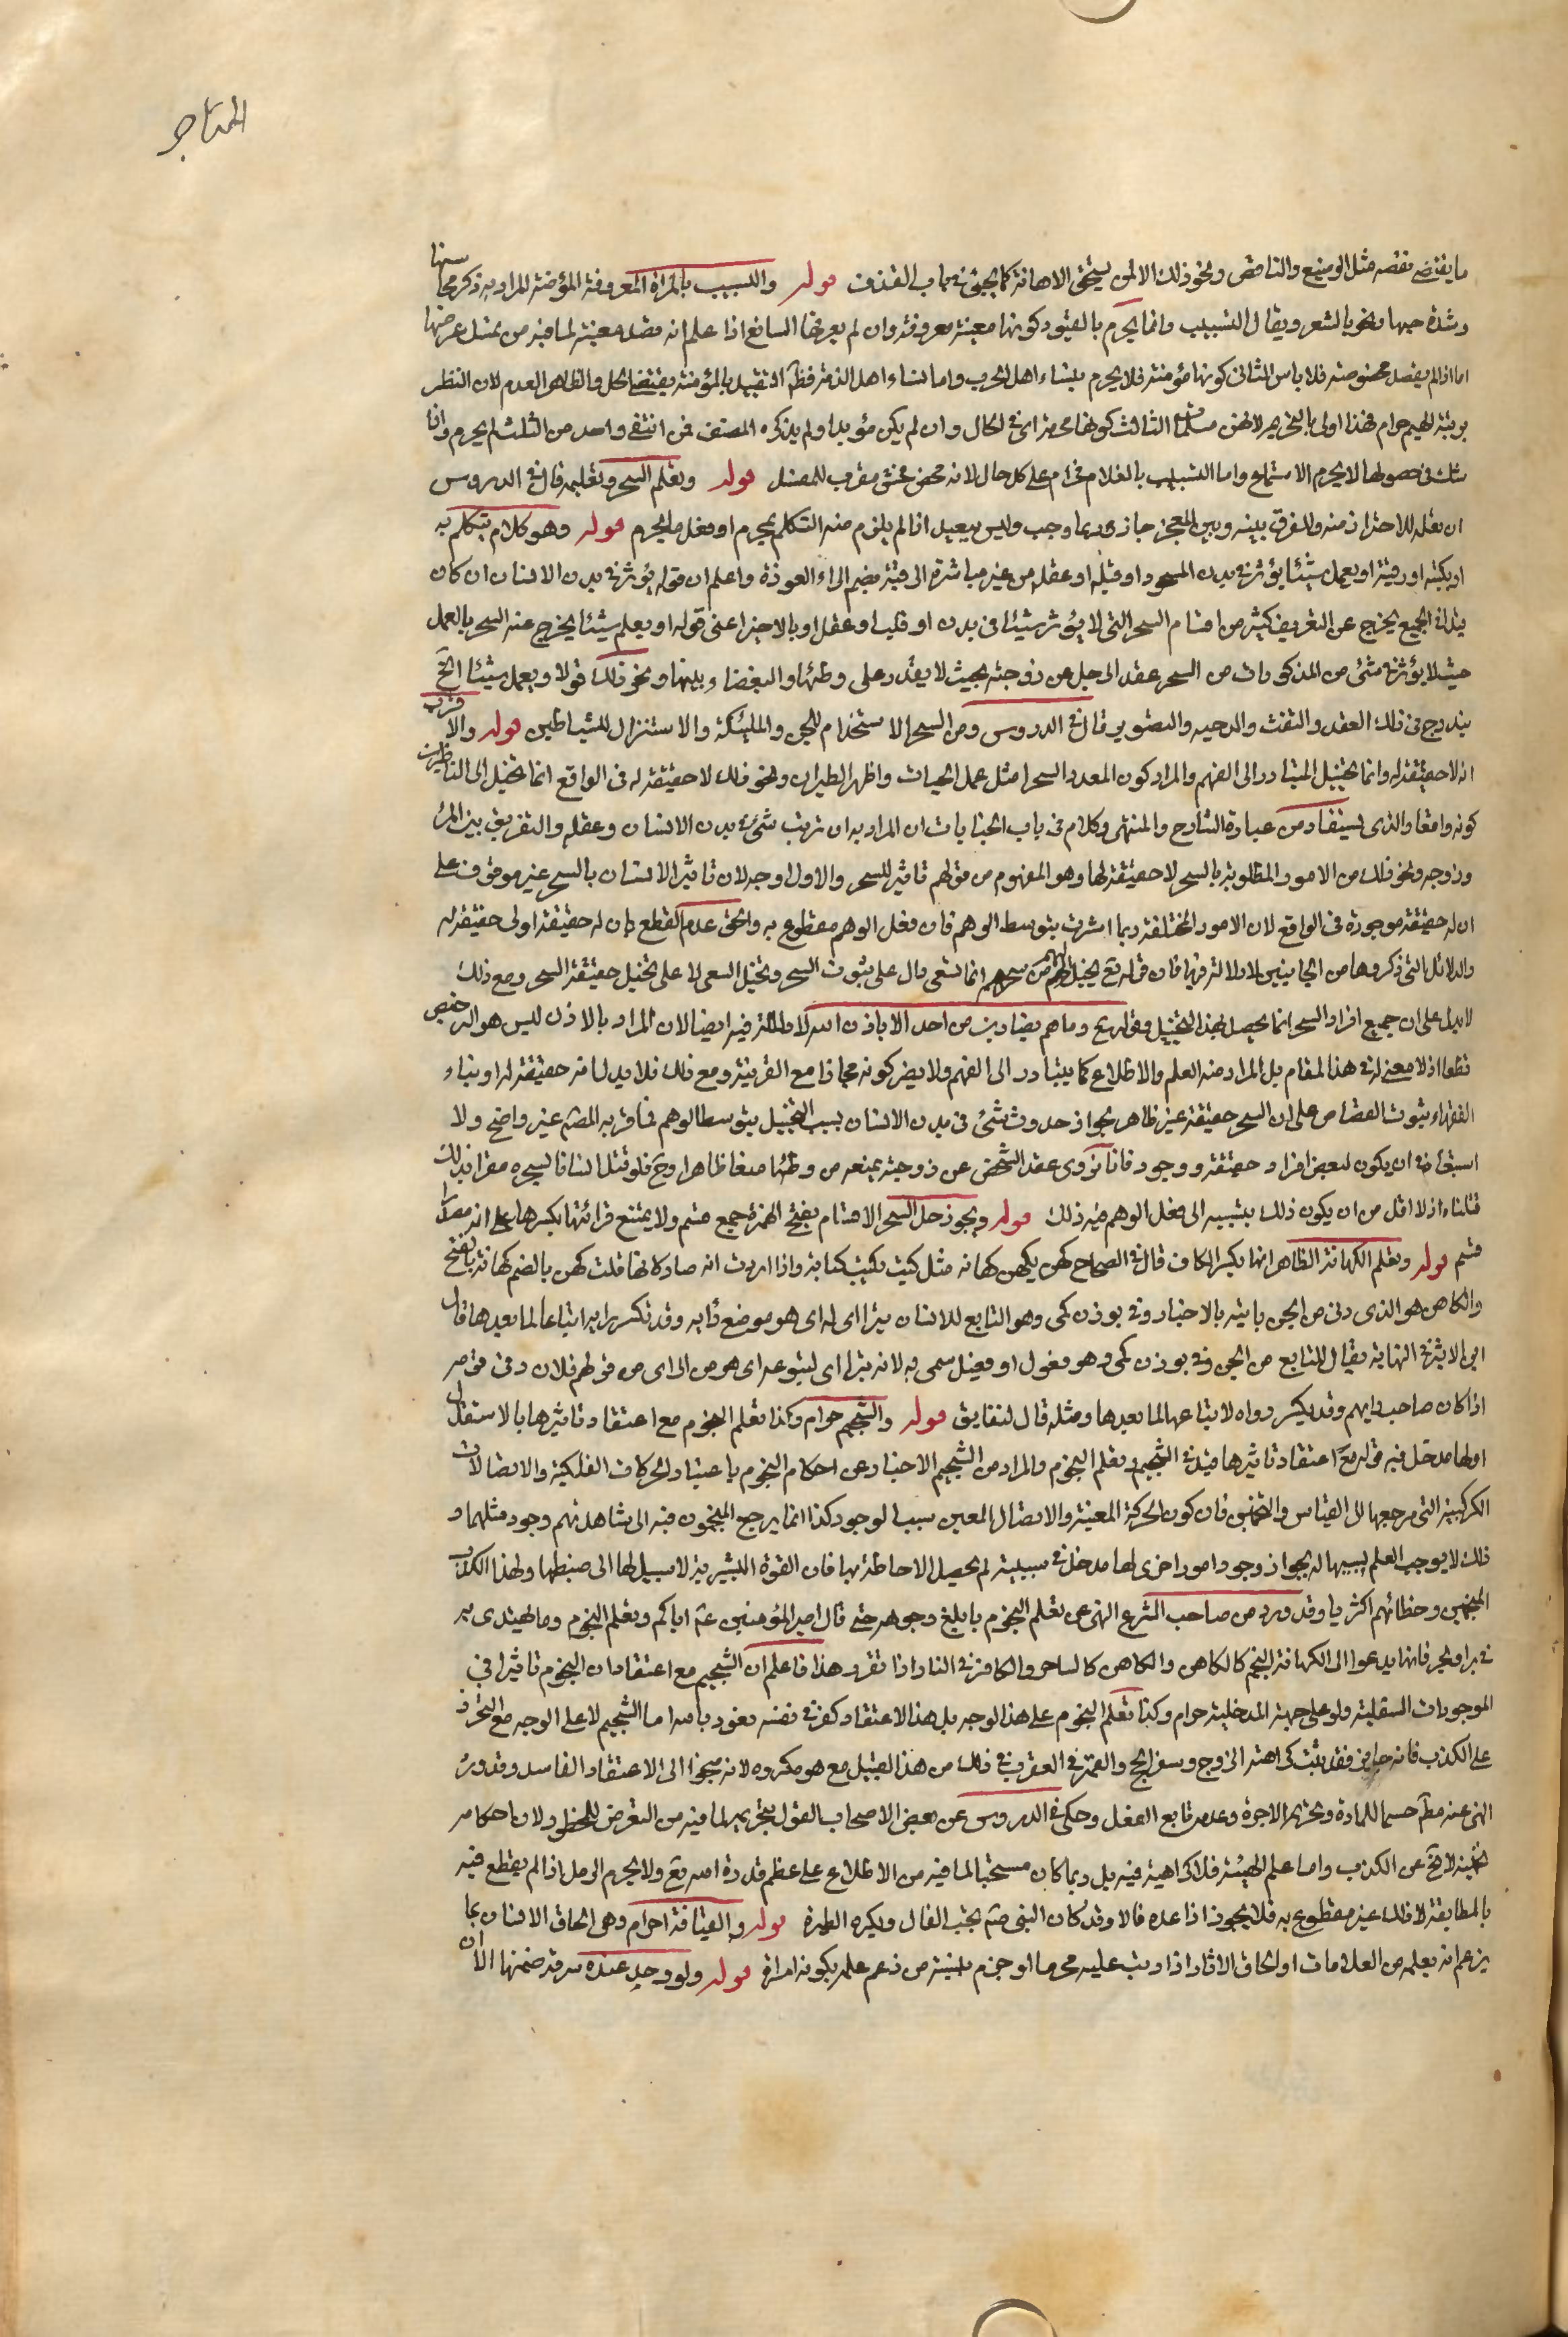 المتاجر
ما يقتضي نقصه مثل الوضيع والناقص ونحو ذلك الا لمن يستحق الاهانة كما يجئ في باب القذف قوله والتشبيب بالمراة المعروفة المؤمنة المراد به ذكر محاسنها
وشدة حبها ونحوه بالشعر ويقال التشبيب وانما يحرم بالقيود كونها معينة معروفة وان لم يعرفها السامع اذا علم انه قصد معينة لما فيه من هتك عرضها
اما اذا لم يقصد مخصوصة فلا باس الثاني كونها مؤمنة فلا يحرم بنساء اهل الحرب واما نساء اهل الذمة فظ التقييد بالمؤمنة يقتضي الحل والظاهر العدم لان النظر
بريبة اليهم حرام فهذا اولى بالتحريم الثالث كونها محرمة اي في الحال وان لم يكن مؤبدا ولم يذكره المصنف فمن انتفى واحد من الثلث لم يحرم واذا
شك في حصولها لا يحرم الاستماع واما التشبيب بالغلام فحرام على كل حال لانه محض فحش مقرب للمفسد قوله وتعلم السحر وتعليمه قال في الدروس
ان تعلمه للاحتراز منه والفرق بينه وبين المعجز جاز وربما وجب وليس ببعيد اذا لم يلزم منه التكلم بمحرم او فعل ما يحرم قوله وهو كلام يتكلم به
او يكتبه او رقية او يعمل شيئا يؤثر في بدن المسحور او قلبه او عقله من غير مباشرة الرقية بضم الراء العوذة واعلم ان قوله يؤثر في بدن الانسان ان كان
قيدا في الجميع يخرج عن التعريف كثير من اقسام السحر التي لا يؤثر شيئا في بدن او قلب او عقل او بالاخير اعني قوله او يعمل شيئا يخرج عنه السحر بالعمل
حيث لا يؤثر في شئ من المذكورات من السحر عقد الرجل عن زوجته بحيث لا يقدر على وطئها والبغضاء بينهما ونحو ذلك قوله او يعمل شيئا الخ
يندرج في ذلك العقد والنفث والدخنة والتصوير قال في الدروس ومن السحر الاستخدام للجن والملئكة والاستنزال للشياطين قوله والاقرب
انه لا حقيقة له وانما تخييل المتبادر الى الفهم والمراد كون المعدود السحر مثل عمل الحيات واظهار الطيران ونحو ذلك لا حقيقة له في الواقع انما تخيل الى الناظرين
كونه واقعا والذي يستفاد من عبارة الشارح والمنتهى وكلام في باب الجنايات ان المراد به ان ترتب شئ في بدن الانسان وعقله والتفريق بين المرء
وزوجه ونحو ذلك من الامور المطلوبة بالسحر لا حقيقة لها وهو المفهوم من قولهم تاثير للسحر والاول اوجه لان تاثير الانسان بالسحر غير موقوف على
ان له حقيقة موجودة في الواقع لان الامور المختلفة ربما اثرت بتوسط الوهم فان فعل الوهم مقطوع به والحق عدم القطع بان له حقيقة او لا حقيقة له
والدلائل التي ذكروها من الجانبين لا دلالة فيها فان قوله تع يخيل اليهم من سحرهم انها تسعى دال على ثبوت السحر وتخيل السعي لا على تخيل حقيقة السحر ومع ذلك
لا يدل على ان جميع افراد السحر انما يحصل بهذا التخييل وقوله تع وما هم بضارين به من احد الا باذن الله لا دلالة فيه ايضا لان المراد بالاذن ليس هو الترخيص
قطعا اذ لا معنى له في هذا المقام بل المراد منه العلم والاطلاع كما يتبادر الى الفهم ولا يضر كونه مجازا مع القرينة ومع ذلك فلا يدل انه حقيقة له او بناء
الفقهاء ثبوت القصاص على ان السحر حقيقة غير ظاهر لجواز حدوث شئ في بدن الانسان بسبب التخييل بتوسط الوهم فما قربه المصنف غير واضح ولا
استبعاد في ان يكون لبعض افراده حقيقة ووجود فانا نرى عقد الشخص عن زوجته يمنعه من وطئها منعا ظاهرا وح فلو قتل انسانا بسحره مقرا بذلك
قتلناه اذ لا اقل من ان يكون ذلك بتسببه الى فعل الوهم فيه ذلك قوله ويجوز حل السحر الاقسام بفتح الهمزة جمع قسم ولا يمتنع قرائتها بكسرها على انه مصدر
قسم قوله وتعلم الكهانة الظاهر انها بكسر الكاف قال في الصحاح كهن يكهن كهانة مثل كتب يكتب كتابة واذا اردت انه صار كاهنا قلت كهن بالضم كهانة بالفتح
والكاهن هو الذي له رئي من الجن ياتيه بالاخبار ورئي بوزن كمي وهو التابع للانسان يتراءى له اي هو موضع رايه وقد تكسر راؤه اتباعا لما بعدها قال
ابن الاثير في النهاية يقال للتابع من الجن رئي بوزن كمي وهو فعيل او فعول سمي به لانه يتراءى لمتبوعه او هو من الراي من قولهم فلان رئي قومه
اذا كان صاحب رايهم وقد يكسر راؤه لاتباعها لما بعدها ومثله قال في الفايق قوله والتنجيم حرام وكذا تعلم النجوم مع اعتقاد تاثيرها بالاستقلال
او لها مدخل فيه قوله مع اعتقاد تاثيرها قيد في التنجيم وتعلم النجوم والمراد من التنجيم الاخبار عن احكام النجوم باعتبار الحركات الفلكية والاتصالات
الكوكبية التي مرجعها الى القياس والتخمين فان كون الحركة المعينة والاتصال المعين سببا لوجود كذا انما يرجع المنجمون فيه الى مشاهدتهم وجود مثلهما و
ذلك لا يوجب العلم بسببيها له لجواز وجود امور اخرى لها مدخل في سببيته لم يحصل الاحاطة بها فان القوة البشرية لا سبيل لها الى ضبطها ولهذا الكذب
المنجمين وخطائهم اكثريا وقد ورد من صاحب الشرع النهي عن تعلم النجوم بابلغ وجوهه حتى قال امير المؤمنين ع اياكم وتعلم النجوم وما يهتدى به
في بر او بحر فانها يدعوا الى الكهانة المنجم كالكاهن والكاهن كالساحر والساحر كالكافر والكافر في النار اذا تقرر هذا فاعلم ان التنجيم مع اعتقاد ان للنجوم تاثيرا في
الموجودات السفلية ولو على جهة المدخلية حرام وكذا تعلم النجوم على هذا الوجه بل هذا الاعتقاد كفر في نفسه نعوذ بالله اما التنجيم لا على الوجه مع التحرز
على الكذب فانه جايز فقد ثبت كراهة التزوج وسفر الحج والقمر في العقرب وذلك من هذا القبيل مع هو مكروه لانه ينجر الى الاعتقاد الفاسد وقد ورد
النهي عنه مط حسما للمادة وتحريم الاجرة وعدمه تابع الفعل وحكى في الدروس عن بعض الاصحاب القول بتحريمه لما فيه من التعرض للمحظور ولان احكامه
تخمينية لا تخ عن الكذب واما علم الهيئة فلا كراهية فيه بل ربما كان مستحبا لما فيه من الاطلاع على عظم قدرة الله تع ولا يحرم الرمل اذا لم يقطع فيه
بالمطابقة لان ذلك غير مقطوع به فلا يجوز اذا عده فالا وقد كان النبي ص يحب الفال ويكره الطيرة قوله والقيافة حرام وهي الحاق الانسان بما
يزعم انه يعلمه من العلامات او الحاق الاثار اذا رتب عليه محرما او جزم به قوله ولو وجد عنده سرقة ضمنها الا ان